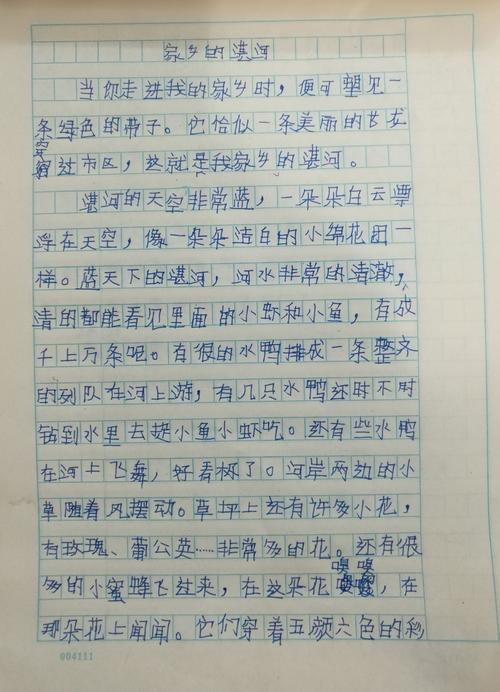 家乡的湛河
当你走进我的家乡时，便可望见一
条绿色的带子。它恰似一条美丽的长龙
穿过市区，这就是我家乡的湛河。
湛河的天空非常蓝，一朵朵白云票
浮在天空，像一朵朵洁白的小绵花团一
样。蓝天下的湛河，河水非常的清澈，
清的都能看见里面的小虾和小鱼，有成
千上万条呢。有很的水鸭排成一条整齐
的列队在河上游，有几只水鸭还时不时
钻到水里去捉小鱼小虾吃。还有些水鸭
在河上飞舞，好看极了。河岸两边的小
草随着风摆动。草坪上还有许多小花，
有玫瑰、蒲公英……非常多的花。还有很
多的小蜜蜂飞过来，在这朵花嗅嗅，在
那朵花上闻闻。它们穿着五颜六色的彩
004111